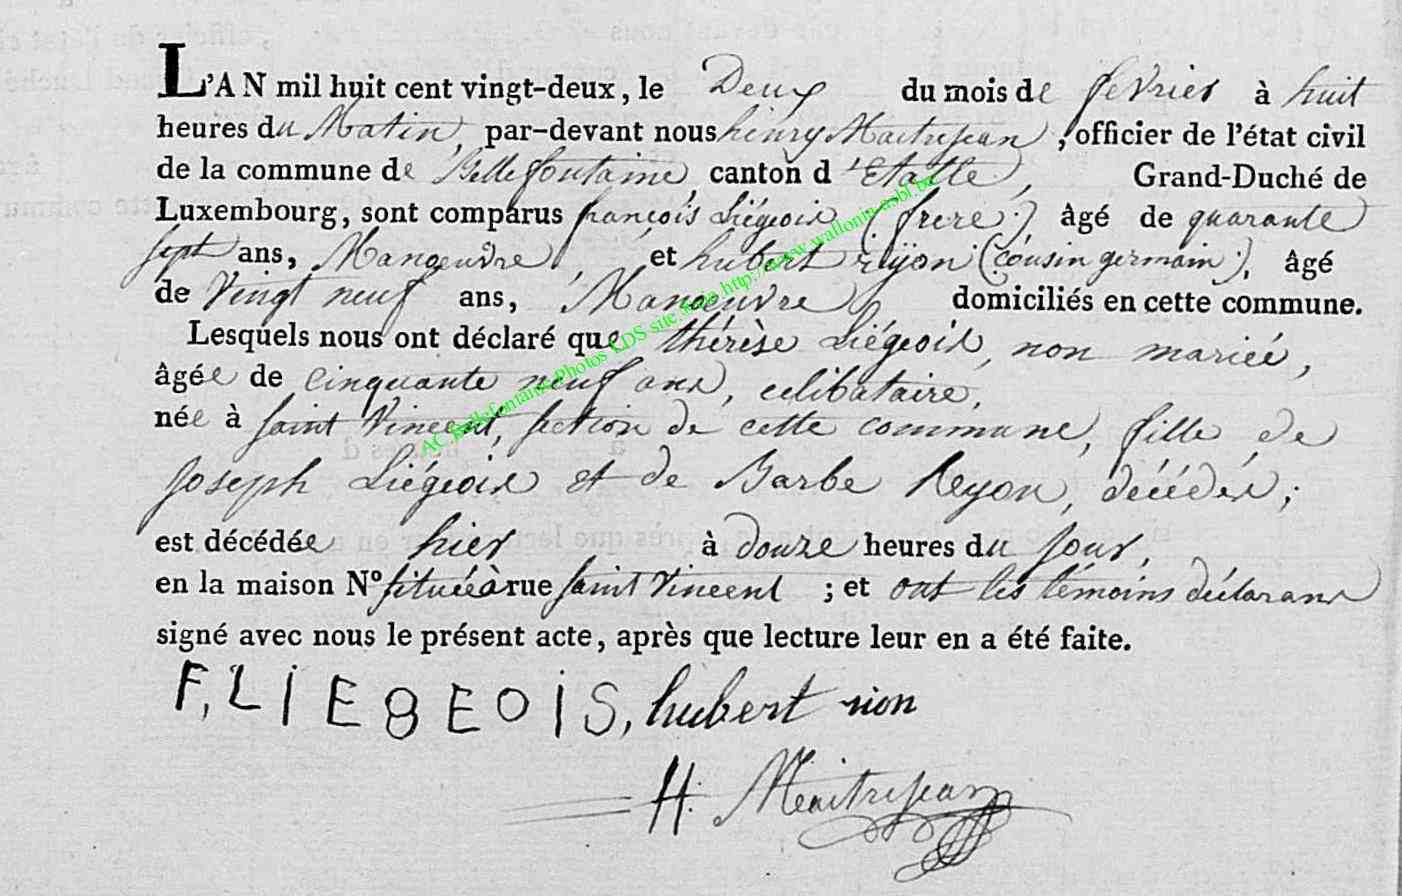 L'AN mil huit cent vingt-deux, le Deux du mois de fevrier à huit
heures du Matin, par-devant nous henry Maitrejean, officier de l'état civil
de la commune de Bellefontaine, canton d'Etalle, Grand-Duché de
Luxembourg, sont comparus françois Liégeois (frere) âgé de quarante
sept ans, Manoeuvre, et hubert riyon (cousin germain), âgé
de Vingt neuf ans, Manoeuvre, domiciliés en cette commune.
Lesquels nous ont déclaré que thérèse Liégeois, non mariée,
âgée de cinquante neuf ans, celibataire,
née à saint Vincent, section de cette commune, fille de
Joseph Liégeois et de Barbe Reyon, décédés;
est décédée hier à douze heures du jour,
en la maison N° située à rue saint Vincent ; et ont les témoins déclarans
signé avec nous le présent acte, après que lecture leur en a été faite.
F, LIEGEOIS, hubert rion
H. Maitrejean
AC Bellefontaine Photos LDS site http://www.wallonia-asbl.be